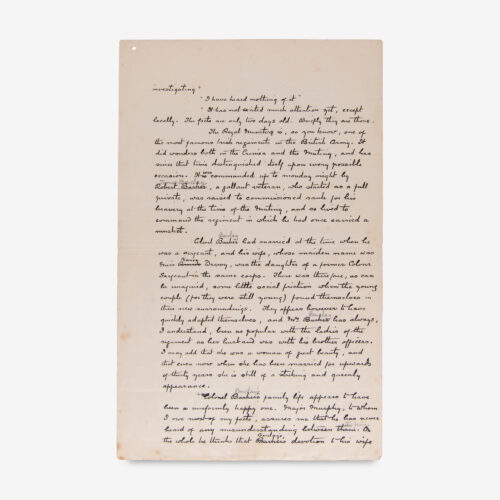 investigating"
"I have heard nothing of it"
"It has not excited much attention yet, except
locally. The facts are only two days old. Briefly they are these.
The Royal Munsters is, as you know, one of
the most famous Irish regiments in the British Army. It
did wonders both in the Crimea and the Mutiny, and has
since that time distinguished itself upon every possible
occasion. It was commanded up to Monday night by
Robert Barker, a gallant veteran, who started as a full
private, was raised to commissioned rank for his
bravery at the time of the Mutiny, and so lived to
command the regiment in which he had once carried a
musket.
Barclay
Colonel Barker had married at the time when he
was a sergeant, and his wife, whose maiden name was
Nancy
Miss Devoy, was the daughter of a former Colour
Sergeant in the same corps. There was therefore, as can
be imagined, some little social friction when the young
couple (for they were still young) found themselves in
their new surroundings. They appear however to have
Barclay
quickly adapted themselves, and Mrs Barker has always,
I understand, been as popular with the ladies of the
regiment as her husband was with his brother officers.
I may add that she was a woman of great beauty, and
that even now when she has been married for upwards
of thirty years she is still of a striking and queenly
appearance.
Barclay's
"Colonel Barker's family life appears to have
been a uniformly happy one. Major Murphy, to whom
I owe most of my facts, assures me that he has never
heard of any misunderstanding between them. On
Barclay's
the whole he thinks that Barker's devotion to his wife